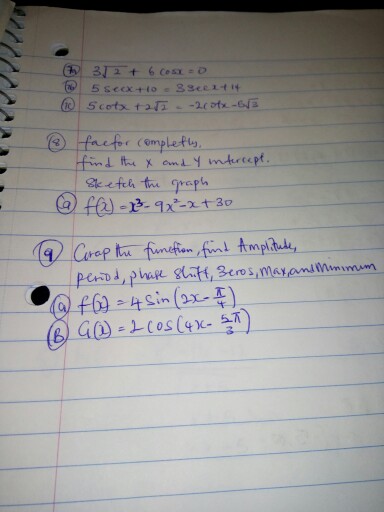 7a 3√2 + 6cosx = 0
b 5secx + 10 = 3secx + 14
c 5cotx + 2√2 = -2cotx - 5√2
8 factor completly,
find the x and y intercept.
Sketch the graph
a f(x) = x³ - 9x² - x + 30
9 Grap the function, find Amplitude,
period, phase shift, zeros, Max, and Minimum
a f(x) = 4 sin(2x - π/4)
B G(x) = 2 cos(4x - 5π/3)